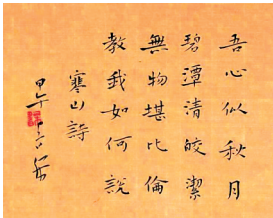 吾心似秋月
碧潭清皎潔
無物堪比倫
教我如何說
寒山詩
甲午